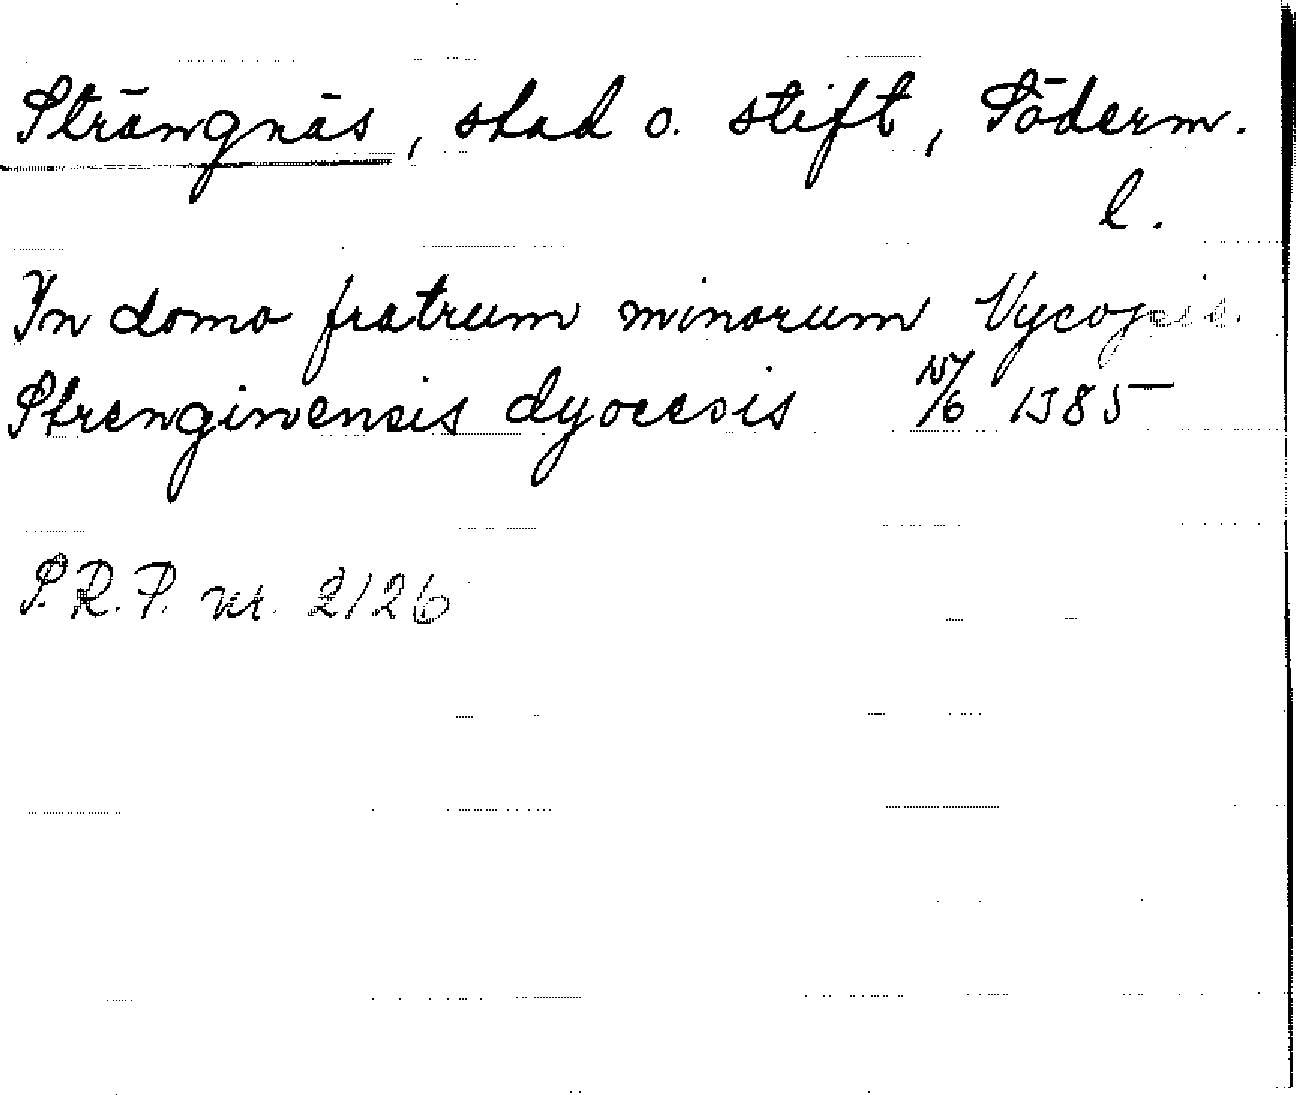 Strängnäs, stad o. stift, Söderm.
l.
In domo fratrum minorum
Strenginensis dyocesis 15/6 1385
S.R.P. nr. 2126